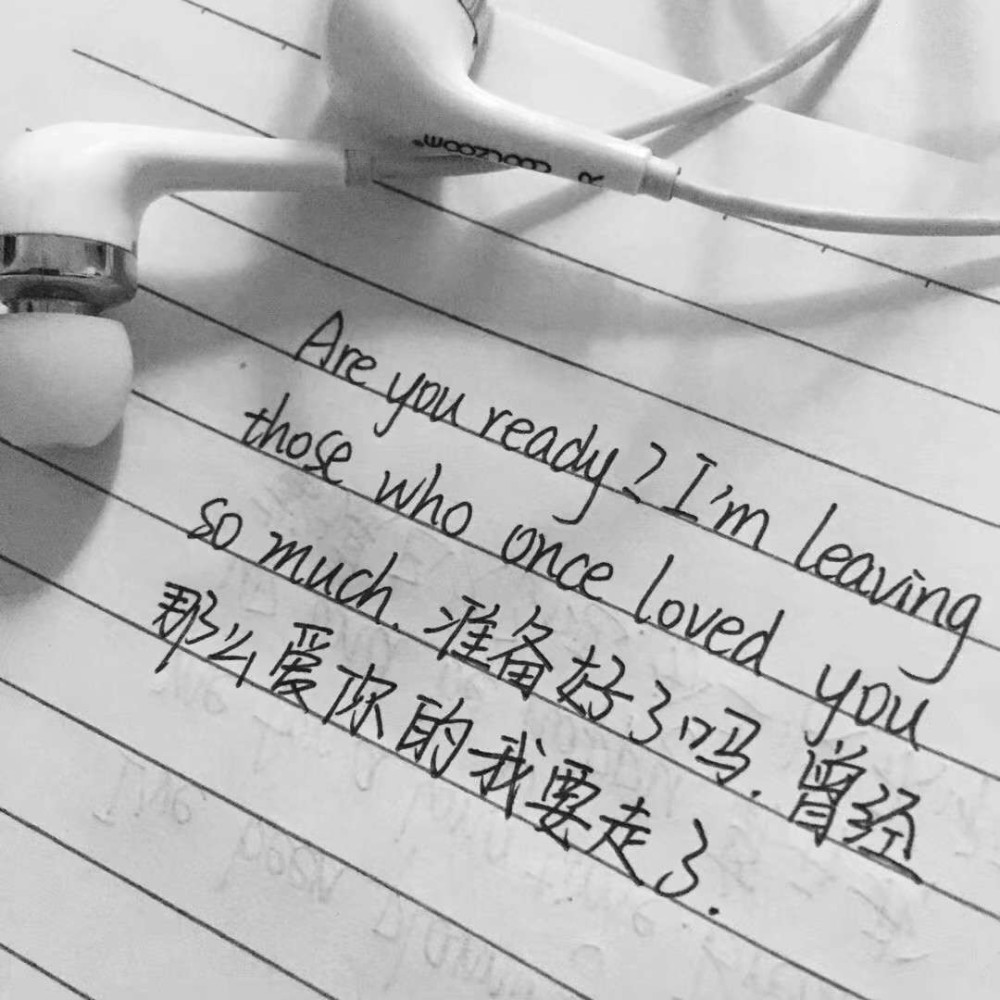 COOLKOOM® R
Are you ready? I'm leaving
those who once loved you
so much. 准备好了吗. 曾经
那么爱你的我要走了.